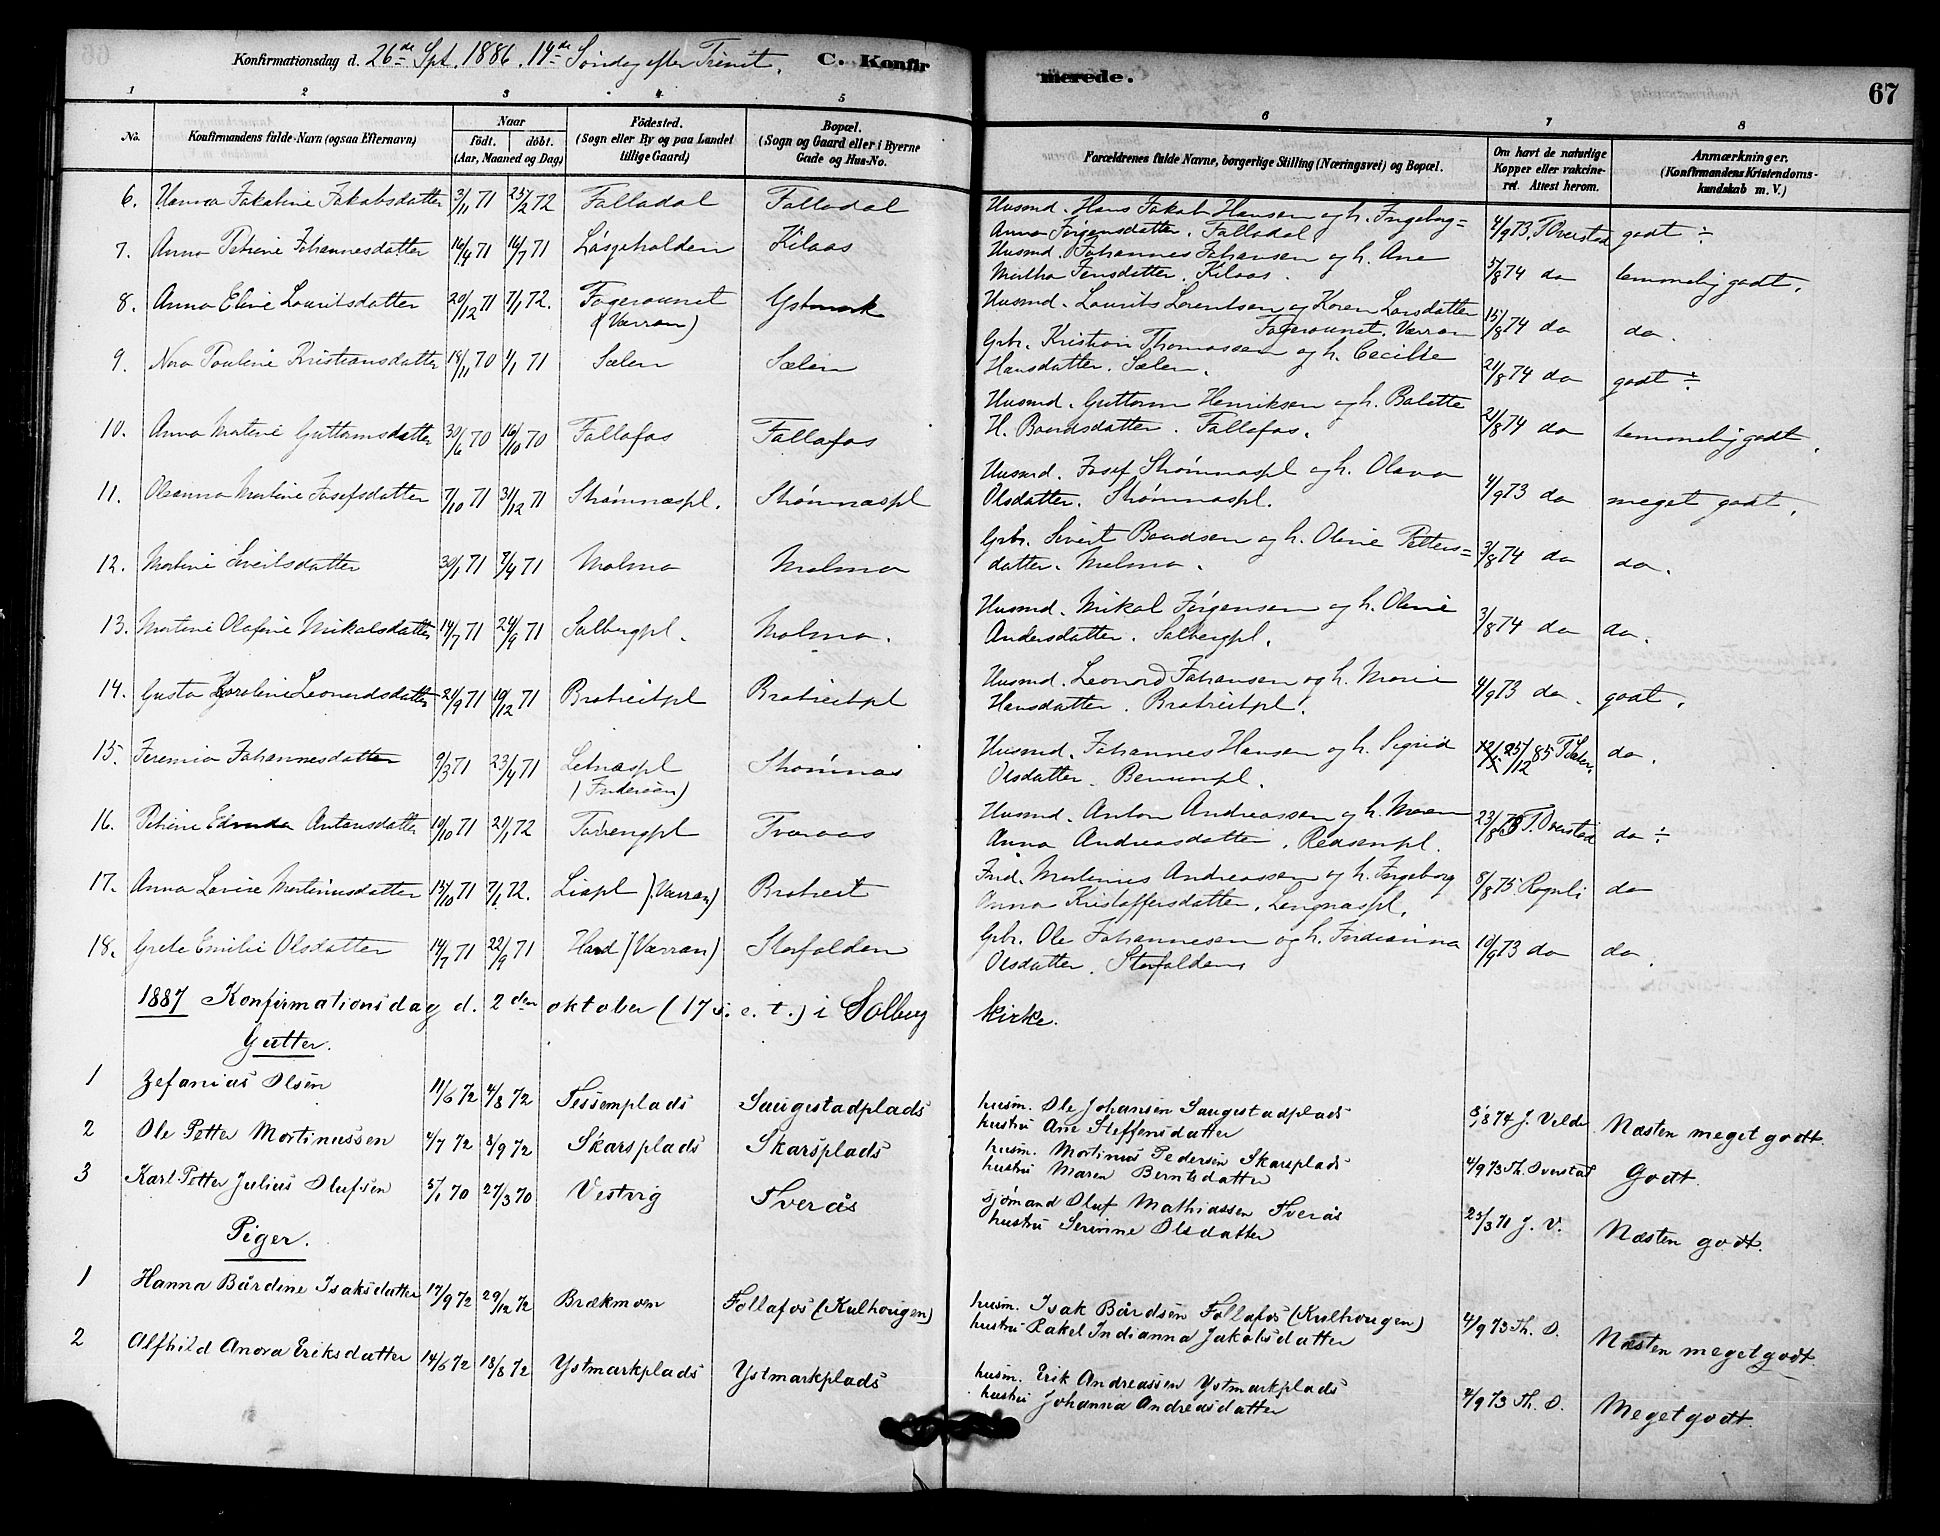 Konfirmationsdag d. 26de Spt. 1886. 14de Søndag efter Trinit. C. Konfirmerede. 67
1 2 3 4 5 6 7 8
No. Konfirmandens fulde Navn (ogsaa Efternavn) Naar født. døbt. (Aar, Maaned og Dag) Födested. (Sogn eller By og paa Landet tillige Gaard) Bopæl. (Sogn og Gaard eller i Byerne Gade og Hus-No. Forældrenes fulde Navne, borgerlige Stilling (Næringsvei) og Bopæl. Om havt de naturlige Kopper eller vakcineret. Attest herom. Anmærkninger. (Konfirmandens Kristendomskundskab m. V.)
6. Hanna Jakobine Jakobsdatter 3/11 71 25/2 72 Folladal Folladal Husmd. Hans Jakob Hansen og h. Ingeborg=
Anna Jørgensdatter. Folladal 4/9 73. T Overstad godt ÷
7. Anna Petrine Johannesdatter 16/4 71 16/7 71 Løsgeholden Kilaas Husmd. Johannes Johansen og h. Ane
Mertha Jensdatter. Kilaas. 5/8 74 do temmelig godt.
8. Anna Eline Lauritsdatter 20/12 71 7/1 72. Fagerounet (Værran) Ystmark Husmd. Laurits Lorentsen og Karen Larsdatter
Fagerounet. Værran 15/8 74 do do.
9. Nora Pauline Kristiansdatter 18/11 70 4/1 71 Sælen Sælein Grbr. Kristian Thomassen og h. Cecilie
Hansdatter. Sælen. 21/8 74 do godt ÷
10. Anna Martine Guttormsdatter 30/6 70 16/10 70 Follafos Follafos Husmd. Guttorm Henriksen og h. Balette
H. Baardsdatter. Follafos. 21/8 74 do temmelig godt.
11. Oleanna Martine Josefsdatter 7/10 71 31/12 71 Strømnæspl. Strømnæspl Husmd. Josef Strømnæspl og h. Olava
Olsdatter. Strømnæspl. 4/9 73 do meget godt.
12. Martine Sivertsdatter 30/1 71 7/4 71 Malmo Malmo Grbr. Sivert Baardsen og h. Oline Petters=
datter. Malmo. 3/8 74 do do.
13. Martine Olafine Mikalsdatter 14/7 71 24/9 71 Solbergpl. Malmo. Husmd. Mikal Jørgensen og h. Oline
Andersdatter. Solbergpl. 3/8 74 do do.
14. Gusta Karoline Leonardsdatter 21/9 71 10/12 71 Bratreitpl Bratreitpl Husmd. Leonard Johansen og h. Marie
Hansdatter. Bratreitpl. 4/9 73 do. godt.
15. Jeremia Johannesdatter 9/3 71 23/4 71 Letnæspl (Inderøen) Strømnæs Husmd. Johannes Hansen og h. Sigrid
Olsdatter. Benumpl. 25/12 85 do.
16. Petrine Antonsdatter 10/10 71 21/1 72 Tørrengpl Tveraas Husmd. Anton Andreassen og h. Maren
Anna Andreasdatter. Rensenpl. 23/8 73 T. Overstad do ÷
17. Anna Lavine Martinusdatter 15/10 71 7/1 72. Liapl (Værran) Bratreit Ind. Martinus Andreassen og h. Ingeborg
Anna Kristoffersdatter. Lengnæspl. 8/8 75 Rognli do
18. Grete Emilie Olsdatter 14/7 71 22/9 71 Hard (Værran) Storfolden Grbr. Ole Johannesen og h. Indianna
Olsdatter. Storfolden 10/9 73 do do.
1887 Konfirmationsdag d. 2den oktober (17 s. e. t.) i Solberg kirke.
Gutter.
1 Zefanias Olsen 11/6 72 4/8 72 Tessemplads Saugestadplads husm. Ole Johansen Saugestadplads
hustru Ane Steffensdatter 8/8 74 J. Velde Næsten meget godt.
2 Ole Petter Mortinussen 4/7 72 8/9 72 Skarsplads Skarsplads husm. Mortinus Pedersen Skarsplads
hustru Maren Berntsdatter 4/9 73 Th. Overstad Godt.
3 Karl Petter Julius Olufsen 5/1 70 27/3 70 Vestvig Tverås sjømand Oluf Mathiassen Tverås
hustru Serinne Olsdatter 25/3 71 J. V. Næsten godt.
Piger.
1 Hanna Bårdine Isaksdatter 17/9 72 29/12 72 Brækmoen Follafos (Kulhougen) husm. Isak Bårdsen Follafos (Kulhougen)
hustru Rakel Indianna Jakobsdatter 4/9 73 Th. O. Næsten meget godt.
2 Alfhild Anora Eriksdatter 14/6 72 18/8 72 Ystmarkplads Ystmarkplads husm. Erik Andreassen Ystmarkplads
hustru Johanna Andreasdatter 4/9 73 Th. O. Meget godt.